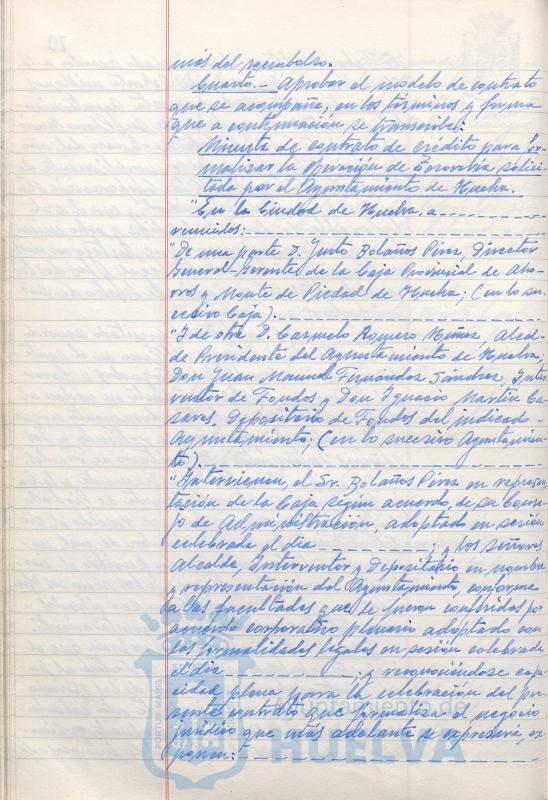 más del reembolso.
Cuarto.- Aprobar el modelo de contrato
que se acompaña, en los términos y forma
que a continuación se transcribe:
Minuta de contrato de crédito para for-
malizar la operación de Tesorería solici-
tada por el Ayuntamiento de Huelva.
"En la Ciudad de Huelva, a
reunidos:
"De una parte D. Justo Bolaños Pérez, Director
General-Gerente de la Caja Provincial de Aho-
rros y Monte de Piedad de Huelva; (en lo su-
cesivo Caja).
"Y de otra D. Carmelo Romero Núñez, Alcal-
de Presidente del Ayuntamiento de Huelva;
Don Juan Manuel Fernández Sández, Inter-
ventor de Fondos y Don Ignacio Martín Ca-
sares, Depositario de Fondos del indicado
Ayuntamiento; (en lo sucesivo Ayuntamien-
to).
"Intervienen, el Sr. Bolaños Pérez en represen-
tación de la Caja según acuerdo, de su Conse-
jo de Administración, adoptado en sesión
celebrada el día ; y los señores
Alcalde, Interventor y Depositario en nombre
y representación del Ayuntamiento, conforme
a las facultades que le fueron conferidas por
acuerdo corporativo plenario adoptado con
las formalidades legales en sesión celebrada
el día ; y reconociéndose capa-
cidad plena para la celebración del pre-
sente contrato que formaliza el negocio
jurídico que más adelante se expresará, ex-
ponen:
PORTUS MARIS
Ayuntamiento de
HUELVA